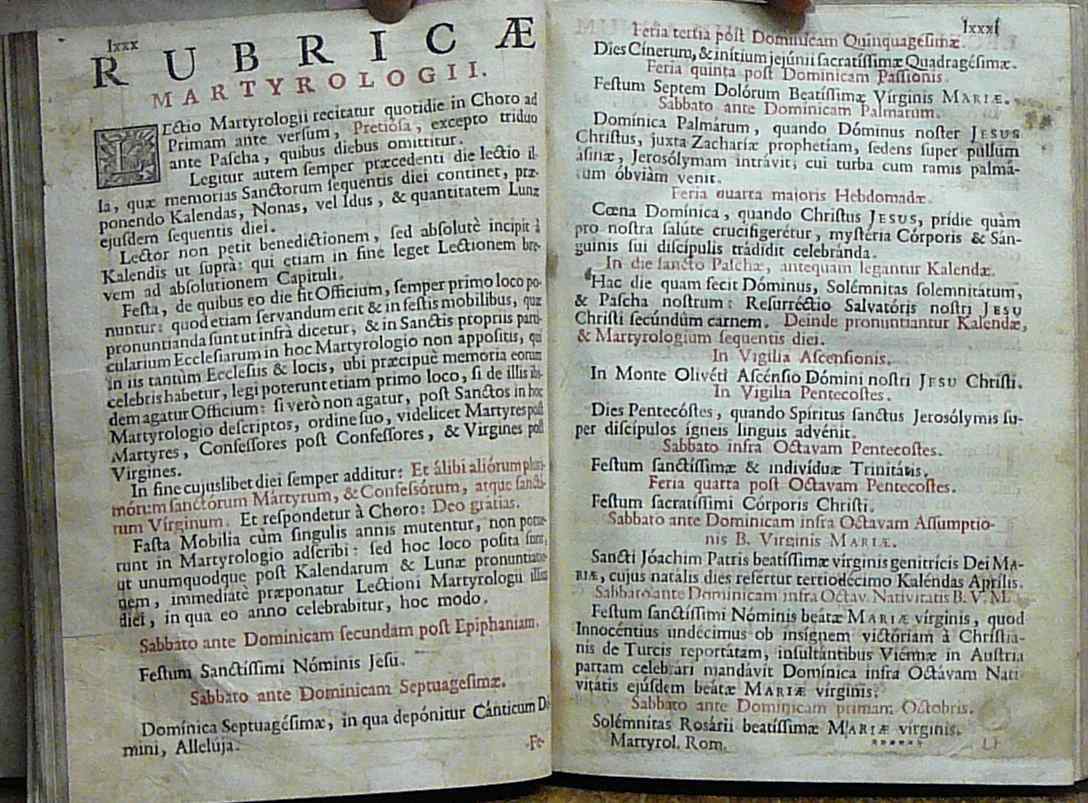 lxxx
RUBRICÆ
MARTYROLOGII.
LEctio Martyrologii recitatur quotidie in Choro ad
Primam ante versum, Pretiósa, excepto triduo
ante Pascha, quibus diebus omittitur.
Legitur autem semper præcedenti die lectio il-
la, quæ memorias Sanctorum sequentis diei continet, præ-
ponendo Kalendas, Nonas, vel Idus, & quantitatem Lunæ
ejusdem sequentis diei.
Lector non petit benedictionem, sed absolutè incipit à
Kalendis ut suprà: qui etiam in fine leget Lectionem bre-
vem ad absolutionem Capituli.
Festa, de quibus eo die fit Officium, semper primo loco po-
nuntur: quod etiam servandum erit & in festis mobilibus, quæ
pronuntianda sunt ut infrà dicetur, & in Sanctis propriis parti-
cularium Ecclesiarum in hoc Martyrologio non appositis, qui
in iis tantùm Ecclesiis & locis, ubi præcipuè memoria eorum
celebris habetur, legi poterunt etiam primo loco, si de illis ibi-
dem agatur Officium: si verò non agatur, post Sanctos in hoc
Martyrologio descriptos, ordine suo, videlicet Martyres post
Martyres, Confessores post Confessores, & Virgines post
Virgines.
In fine cujuslibet diei semper additur: Et álibi aliórum pluri-
mórum sanctórum Mártyrum, & Confessórum, atque sanctá-
rum Vírginum. Et respondetur à Choro: Deo grátias.
Fasta Mobilia cùm singulis annis mutentur, non potue-
runt in Martyrologio adscribi: sed hoc loco posita sunt,
ut unumquodque post Kalendarum & Lunæ pronuntiatio-
nem, immediatè præponatur Lectioni Martyrologii illius
diei, in qua eo anno celebrabitur, hoc modo.
Sabbato ante Dominicam secundam post Epiphaniam.
Festum Sanctissimi Nóminis Jesu.
Sabbato ante Dominicam Septuagesimæ.
Domínica Septuagésimæ, in qua depónitur Cánticum Dó-
mini, Allelúja.
Fe-
lxxxi
Feria tertia póst Dominicam Quinquagesimæ.
Dies Cínerum, & inítium jejúnii sacratíssimæ Quadragésimæ.
Feria quinta post Dominicam Passionis.
Festum Septem Dolórum Beatíssimæ Vírginis MARIÆ.
Sabbato ante Dominicam Palmarum.
Domínica Palmárum, quando Dóminus noster JESUS
Christus, juxta Zachariæ prophetíam, sedens super pullum
ásinæ, Jerosólymam intrávit, cui turba cum ramis palmá-
rum óbviàm venit.
Feria quarta majoris Hebdomadæ.
Cœna Domínica, quando Christus JESUS, prídie quàm
pro nostra salúte crucifigerétur, mystéria Córporis & Sán-
guinis sui discípulis trádidit celebránda.
In die sancto Paschæ, antequam legantur Kalendæ.
Hac die quam fecit Dóminus, Solémnitas solemnitátum,
& Pascha nostrum: Resurréctio Salvatóris nostri JESU
Christi secúndùm carnem. Deinde pronuntiantur Kalendæ,
& Martyrologium sequentis diei.
In Vigilia Ascensionis.
In Monte Olivéti Ascénsio Dómini nostri JESU Christi.
In Vigilia Pentecostes.
Dies Pentecóstes, quando Spíritus sanctus Jerosólymis su-
per discípulos ígneis linguis advénit.
Sabbato infra Octavam Pentecostes.
Festum sanctíssimæ & indivíduæ Trinitátis.
Feria quarta post Octavam Pentecostes.
Festum sacratíssimi Córporis Christi.
Sabbato ante Dominicam infra Octavam Assumptio-
nis B. Virginis MARIÆ.
Sancti Jóachim Patris beatíssimæ vírginis genitrícis Dei MA-
RIÆ, cujus natális dies refertur tertiodécimo Kaléndas Aprílis.
Sabbato ante Dominicam infra Octav. Nativitatis B. V. M.
Festum sanctíssimi Nóminis beátæ MARIÆ vírginis, quod
Innocéntius undécimus ob insígnem victóriam à Christiá-
nis de Turcis reportátam, insultántibus Viénnæ in Austria
partam celebrári mandávit Domínica infra Octávam Nati
vitátis ejúsdem beátæ MARIÆ vírginis.
Sabbato ante Dominicam primam Octobris.
Solémnitas Rosárii beatíssimæ MARIÆ vírginis.
Martyrol. Rom.